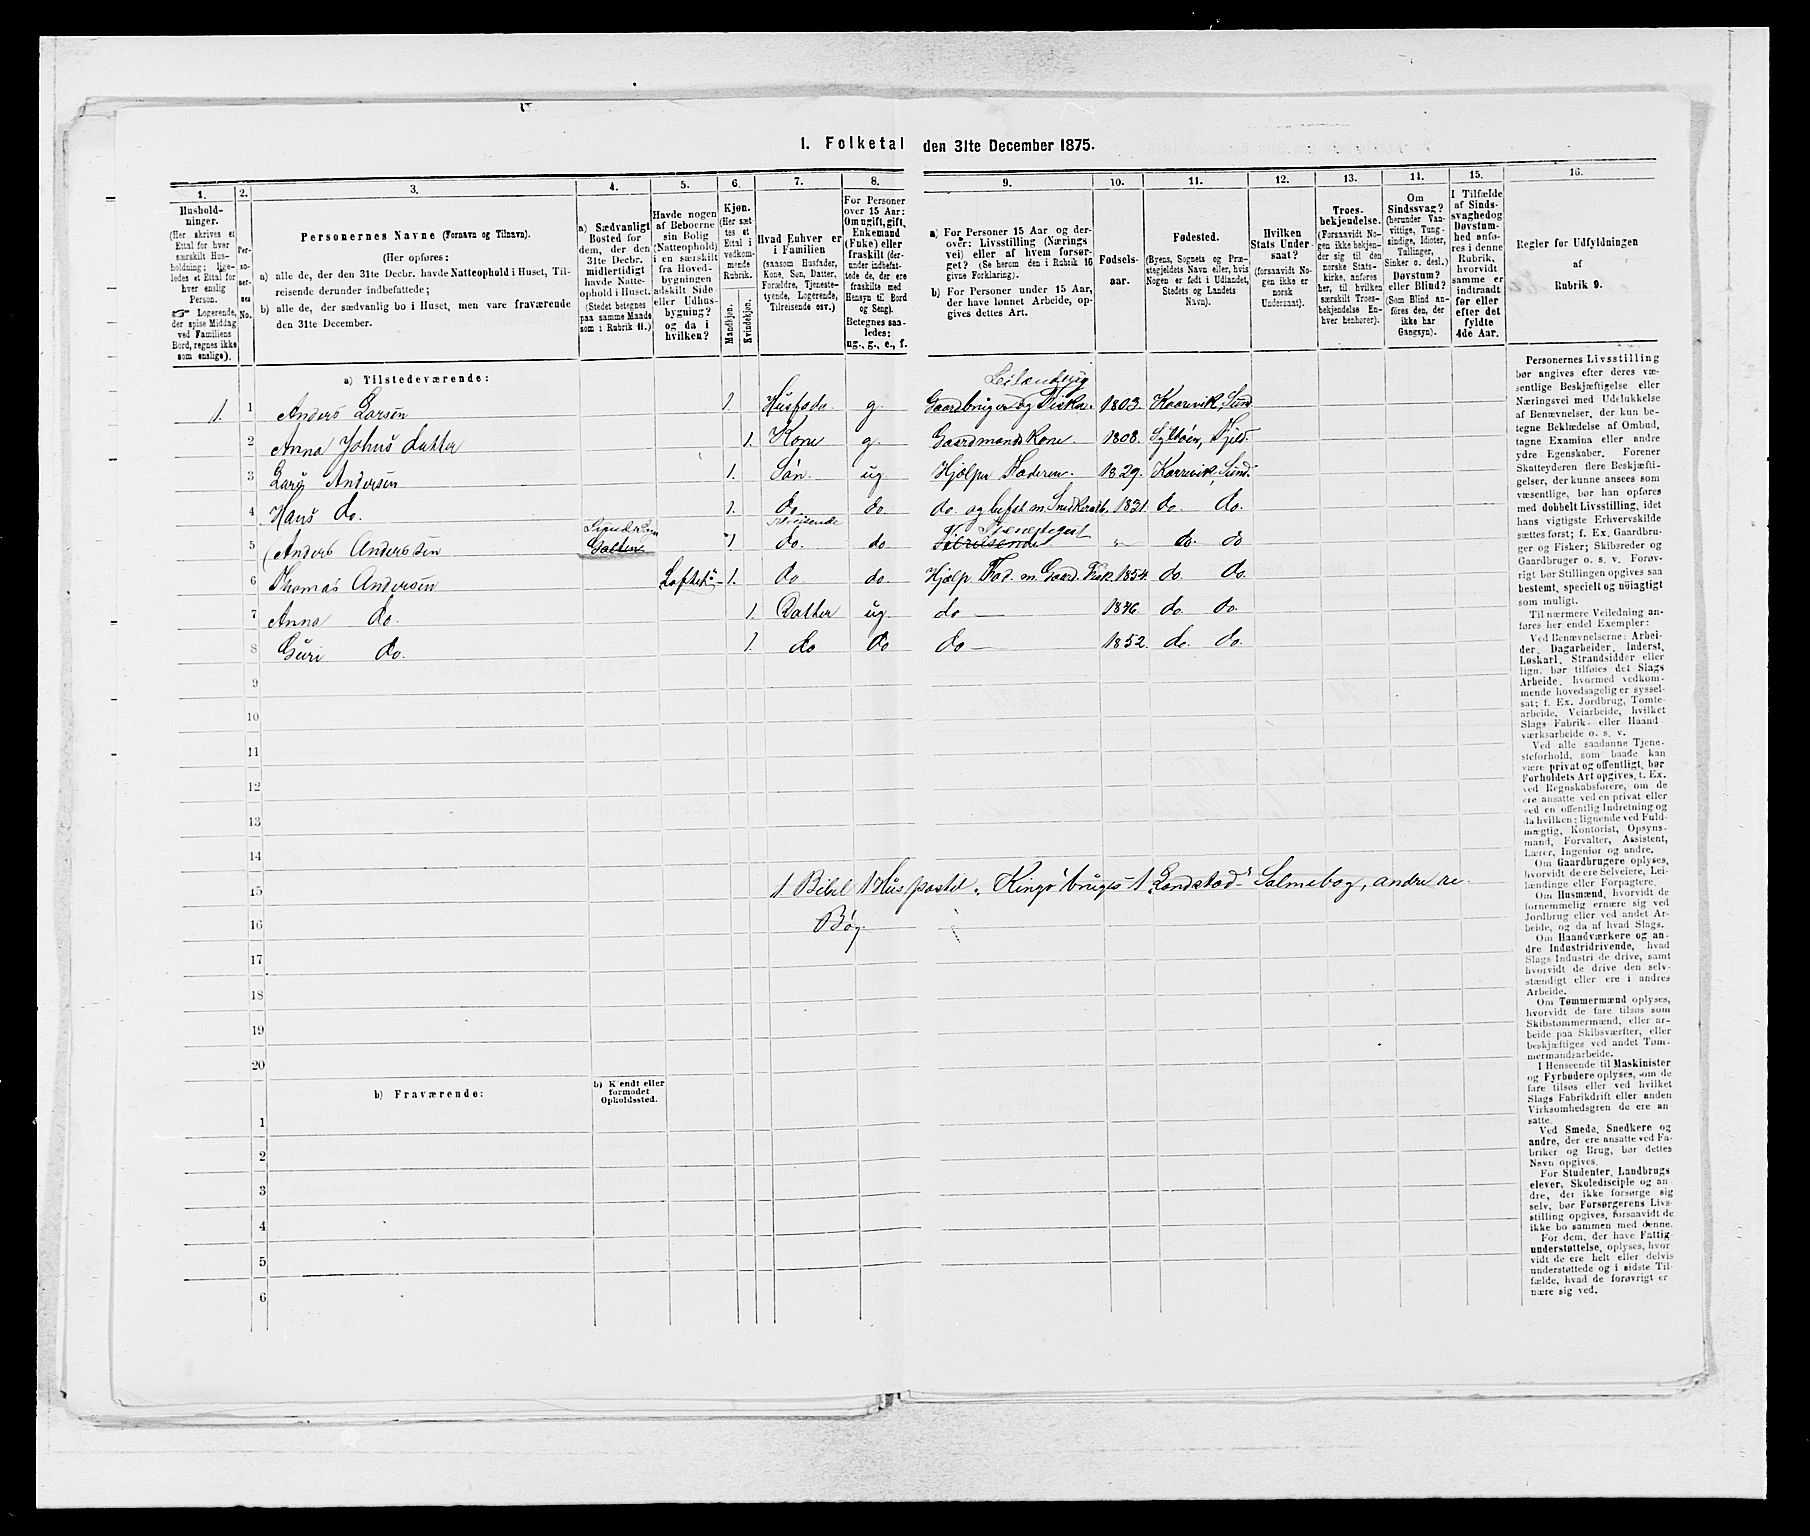 1. Folketal den 31te December 1875.
1. 2. 3. 4. 5. 6. 7. 8. 9. 10. 11. 12. 13. 14. 15. 16.
Hushold-
ninger.
(Her skrives et
Ettal for hver
særskilt Hus-
holdning; lige-
ledes et Ettal for
hver enslig
Person.
☞ Logerende,
der spise Middag
ved Familiens
Bord, regnes ikke
som enslige).
Per-
so-
ner-
nes
No.
Personernes Navne (Fornavn og Tilnavn).
(Her opføres:
a) alle de, der den 31te Decbr. havde Natteophold i Huset, Til-
reisende derunder indbefattede;
b) alle de, der sædvanlig bo i Huset, men vare fraværende
den 31te December.
a) Sædvanligt
Bosted for
dem, der den
31te Decbr.
midlertidigt
havde Natte-
ophold i Huset.
(Stedet betegnes
paa samme Maade
som i Rubrik 11.)
Havde nogen
af Beboerne
sin Bolig
(Natteophold)
i en særskilt
fra Hoved-
bygningen
adskilt Side
eller Udhus-
bygning?
og da i
hvilken?
Kjøn.
(Her sæt
tes et
Ettal i
vedkom-
mende
Rubrik.
Mandkjøn.
Kvindekjøn.
Hvad Enhver er
i Familien
(saasom Husfader,
Kone, Søn, Datter,
Forældre, Tjeneste-
tyende, Logerende,
Tilreisende osv.)
For Personer
over 15 Aar:
Om ugift, gift,
Enkemand
(Enke) eller
fraskilt (der-
under indbefat-
tede de, der ere
fraskilte med
Hensyn til Bord
og Seng).
Betegnes saa-
ledes:
ug., g., e., f.
a) For Personer 15 Aar og der-
over: Livsstilling (Nærings
vei) eller af hvem forsør-
get? (Se herom den i Rubrik 16
givne Forklaring).
b) For Personer under 15 Aar,
der have lønnet Arbeide, op-
gives dettes Art.
Fødsels-
aar.
Fødested.
(Byens, Sognets og Præ-
stegjeldets Navn eller, hvis
Nogen er født i Udlandet,
Stedets og Landets
Navn).
Hvilken
Stats Under-
saat?
(forsaavidt No-
gen ikke er
norsk
Undersaat).
Troes-
bekjendelse.
(Forsaavidt No-
gen ikke bekjen-
der sig til den
norske Stats-
kirke, anføres
her, til hvilken
særskilt Troes-
bekjendelse En-
hver henhører).
Om
Sindssvag?
(herunder Van-
vittige, Tung-
sindige, Idioter,
Tullinger,
Sinker o. desl.)
Døvstum?
eller Blind?
(Som Blind an-
føres den, der
ikke har
Gangsyn).
I Tilfælde
af Sinds-
svaghed og
Døvstum-
hed anfø-
res i denne
Rubrik,
hvorvidt
samme er
indtraadt
før eller
efter det
fyldte
4de Aar.
Regler for Udfyldningen
af
Rubrik 9.
a) Tilstedeværende:
Leilænding
1. 1 Anders Larsen 1. Husfade. g. Gaardbruger og Fisker. 1803. Kaarevik, Sund
2 Anna Johns datter 1. Kone g. Gaardmands Kone. 1808. Syltøen, Fjeld.
3 Lars Andersen 1. Søn. ug Hjælper Faderen. 1829. Kaarevik, Sund.
4 Hans do. 1. do. do do og besk m. Snedkerarb. 1831. do. do.
5 (Anders Andersen 1 Tilreisende do. do Tilreisende " do. do
6 Thomas Andersen Loftet 1. do do Hjælp Fad. m. Gaard. Fisk. 1854. do. do.
7 Anna do. 1. Datter ug. do — 1846. do. do.
8 Guri do. 1. do do do — 1852. do. do.
9
10
11
12
13
14
15 1 Bibel 1 Huspostil, "Kingo" bruges 1 "Landstad" Salmebog, andre re.
16 Bøg.
17
18
19
20
b) Fraværende:
b) Kjendt eller
formodet
Opholdssted.
1
2
3
4
5
6
Personernes Livsstilling
bør angives efter deres væ-
sentlige Beskjæftigelse eller
Næringsvei med Udelukkelse
af Benævnelser, der kun be-
tegne Beklædelse af Ombud,
tagne Examina eller andre
ydre Egenskaber. Forener
Skatteyderen flere Beskjæfti-
gelser, der kunne ansees som
væsentlige, bør han opføres
med dobbelt Livsstilling, idet
hans vigtigste Erhvervskilde
sættes først; f. Ex. Gaardbru-
ger og Fisker; Skibsreder og
Gaardbruger o. s. v. Forøv-
rigt bør Stillingen opgives saa
bestemt, specielt og nöiagtigt
som muligt.
Til nærmere Veiledning an-
føres her endel Exempler:
Ved Benævnelserne: Arbei-
der, Dagarbeider, Inderst,
Løskarl, Strandsidder eller
lign. bør tilføies det Slags
Arbeide, hvormed vedkom-
mende hovedsagelig er syssel-
sat; f. Ex. Jordbrug, Tomte-
arbeide, Veiarbeide, hvilket
Slags Fabrik- eller Haand
værksarbeide o. s. v.
Ved alle saadanne Tjene-
steforhold, som baade kan
være privat og offentligt, bør
Forholdets Art opgives, t. Ex.
ved Regnskabsførere, om de
ere ansatte ved en privat eller
ved en offentlig Indretning og
da hvilken; lignende ved Fuld-
mægtig, Kontorist, Opsyns-
mand, Forvalter, Assistent,
Lærer, Ingeniør og andre.
Om Gaardbrugere oplyses,
hvorvidt de ere Selveiere, Lei-
lændinge eller Forpagtere.
Om Husmænd, hvorvidt de
fornemmelig ernære sig ved
Jordbrug eller ved andet Ar-
beide, og da af hvad Slags.
Om Haandværkere og an-
dre Industridrivende, hvad
Slags Industri de drive, samt
hvorvidt de drive den selv-
stændigt eller ere i andres
Arbeide.
Om Tømmermænd oplyses,
hvorvidt de fare tilsøs som
Skibstømmermænd, eller ar-
beide paa Skibsværfter, eller
beskjæftiges ved andet Tøm-
mermandsarbeide.
I Henseende til Maskinister
og Fyrbødere oplyses, som de
fare tilsøs eller ved hvilket
Slags Fabrikdrift eller anden
Virksomhedsgren de ere an
satte.
Ved Smede, Snedkere og
andre, der ere ansatte ved Fa-
briker og Brug, bør dettes
Navn opgives.
For Studenter, Landbrugs
elever, Skoledisciple og an-
dre, der ikke forsørge sig
selv, bør Forsørgerens Livs-
stilling opgives, forsaavidt de
ikke bo sammen med denne.
For dem, der have Fattig-
understøttelse, oplyses, hvor-
vidt de ere helt eller delvis
understøttede og i sidste Til-
fælde, hvad de forøvrigt er
nære sig ved.